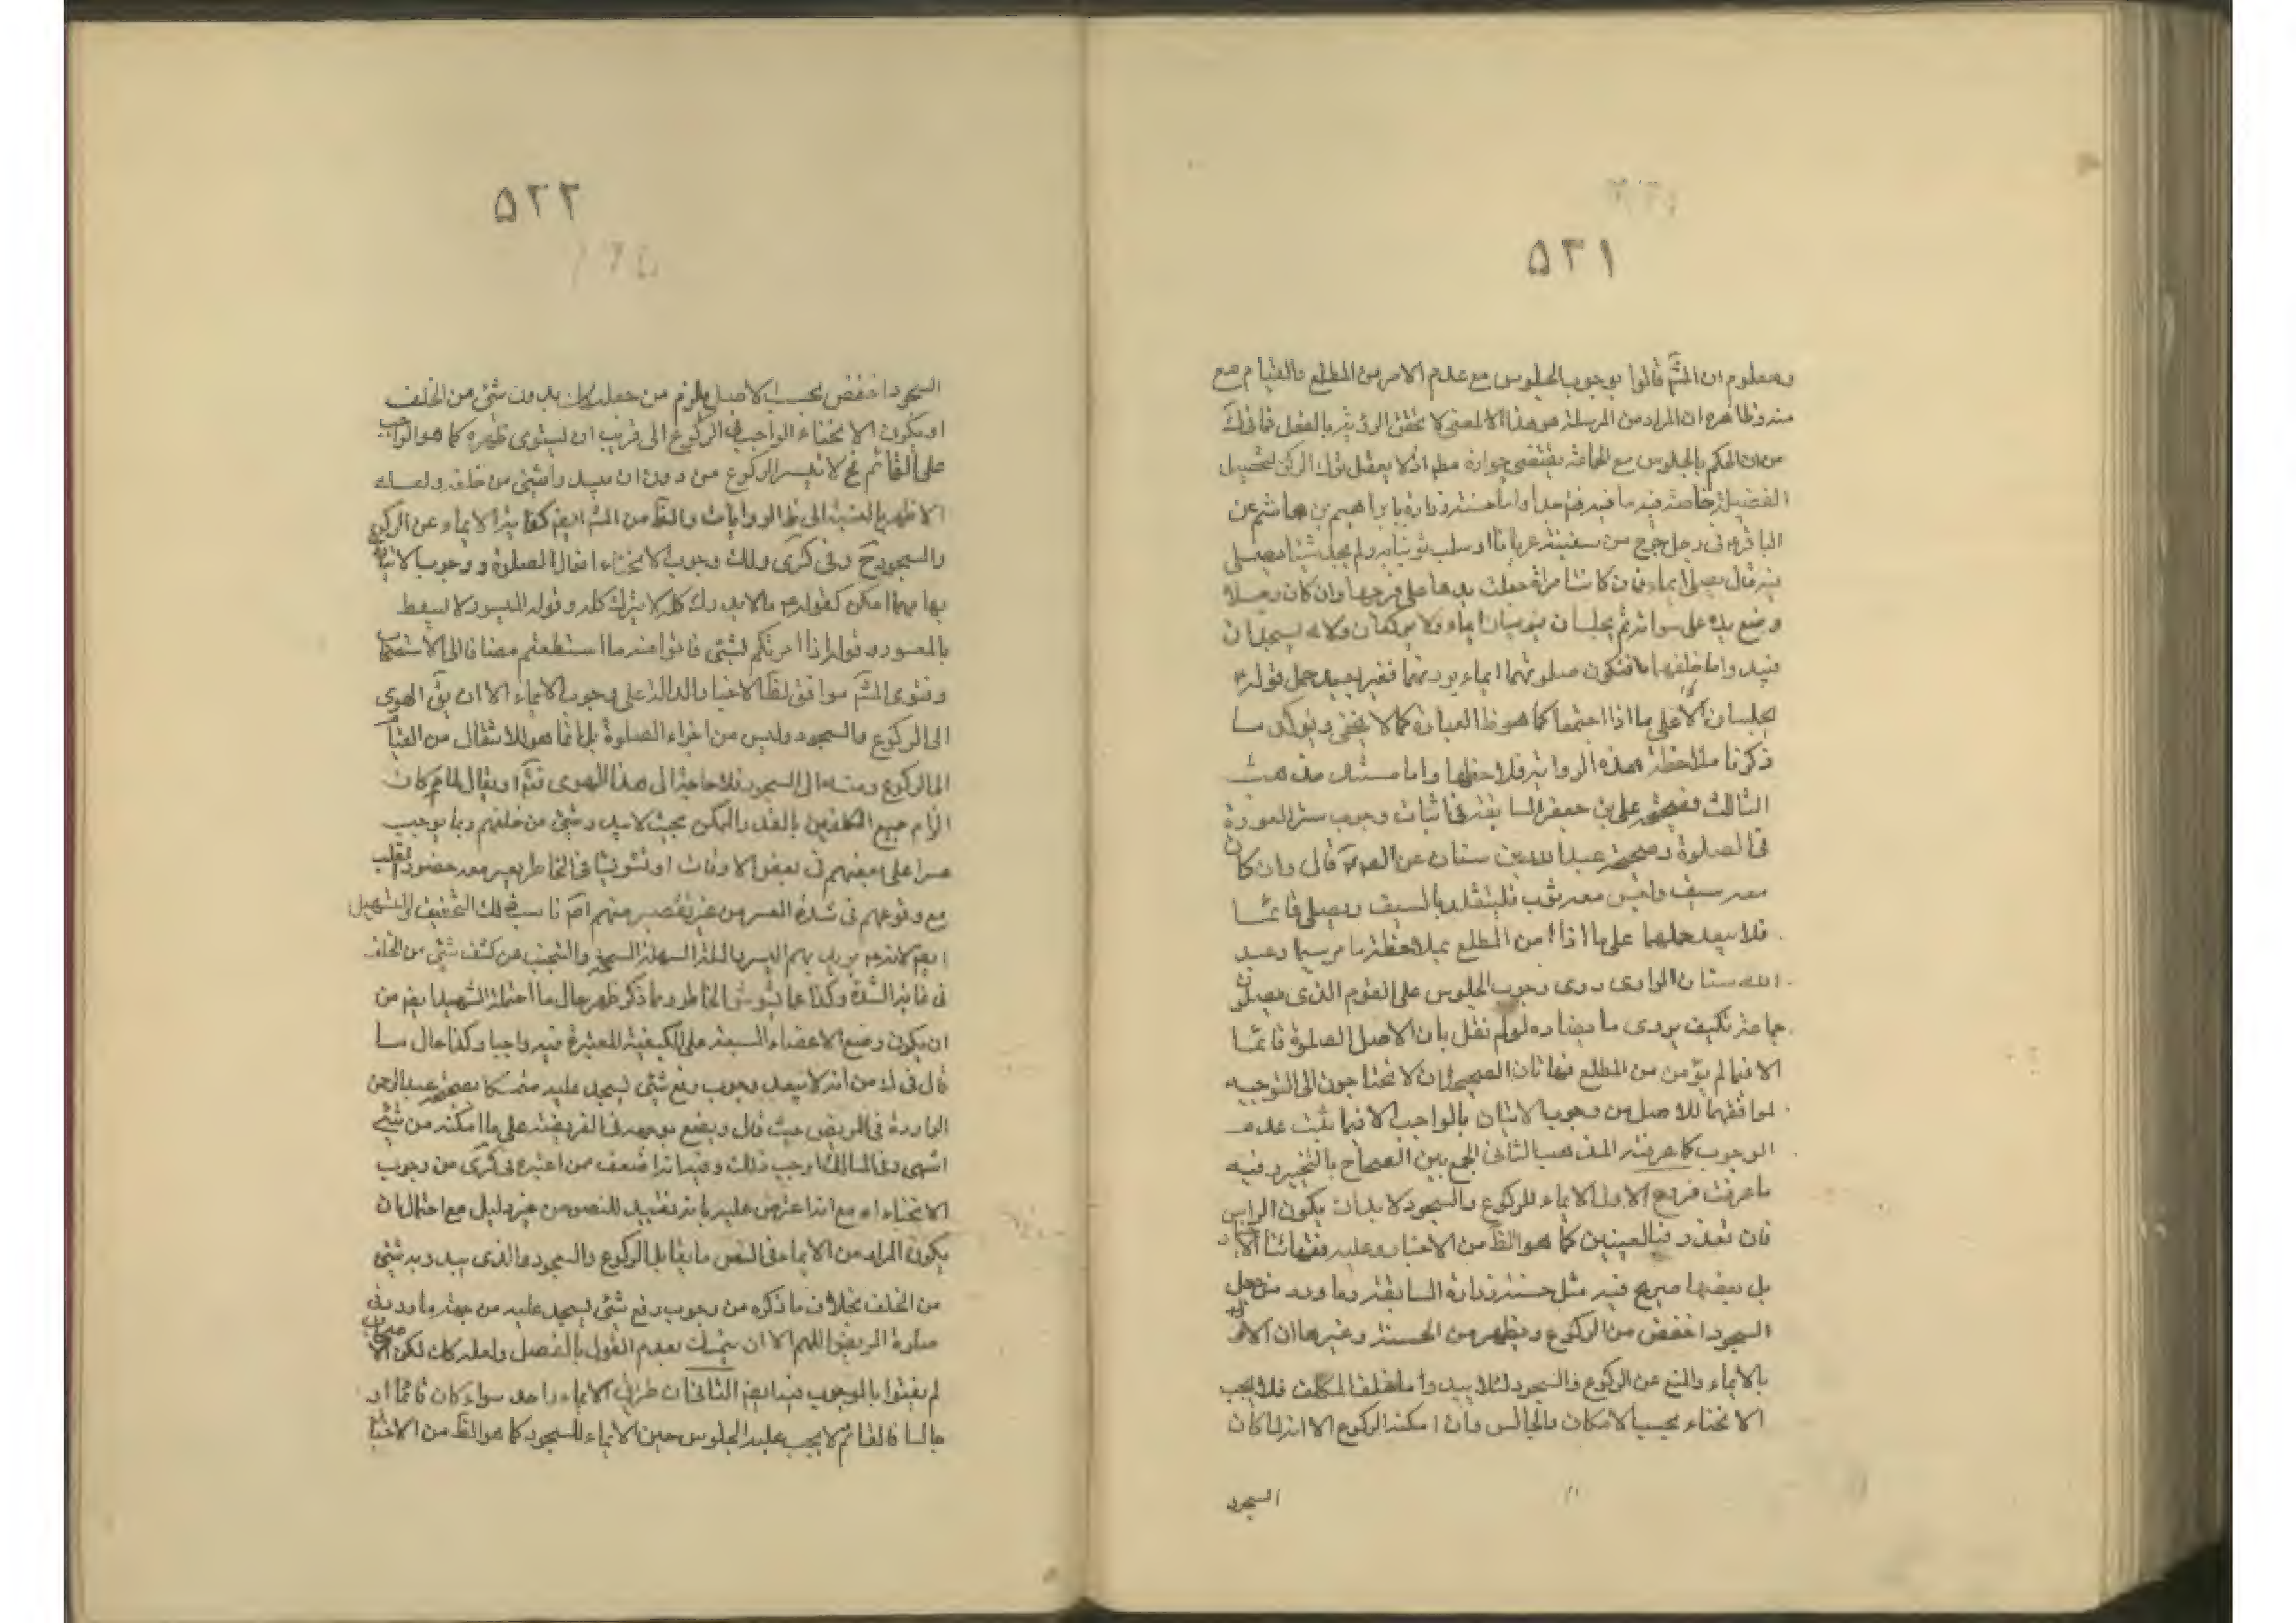 ٥٢١
ومعلوم ان المش قالوا بوجوب الجلوس مع عدم الامن من المطلع والقيام مع
منه وظاهره ان المراد من المرسلة هو هذا لا المعنى لا تحقق الرؤية بالفعل
من ان الحكم بالجلوس مع المخافة يقتضي جوازه مط اذ لا يعقل ترك الركن لتحصيل
الفضيلة خاصة فيه ما فيه واما حسنة زرارة بابراهيم بن هاشم عن
الباقر ع في رجل خرج من سفينة عريانا او سلب ثيابه ولم يجد شيئا يصلي
فيه قال يصلي ايماء فان كانت امراة جعلت يدها على فرجها وان كان رجلا
وضع يده على سوأته ثم يجلسان فيوميان ايماء ولا يركعان ولا يسجدان
فيبدو ما خلفهما تكون صلوتهما ايماء برؤسهما فغير بعيد حمل قوله ع
يجلسان الا على ما اذا اجتمعا كما هو ظ العبارة كما لا يخفى ويؤكد ما
ذكرنا ملاحظة هذه الرواية فلاحظها واما مستند مذهب
الثالث فصحيحة علي بن جعفر السابقة في اثبات وجوب ستر العورة
في الصلوة وصحيحة عبد الله بن سنان عن الص قال وان كان
معه سيف وليس معه ثوب فليتقلد بالسيف ويصلي قائما
فلا يبعد حملهما على ما اذا امن المطلع بملاحظة ما مر سيما وعبد
الله سنان الراوي روى وجوب الجلوس على القوم الذي يصلون
جماعة فكيف يروي ما يضاده لو لم نقل بان الاصل الصلوة قائما
الا فيما لم يؤمن من المطلع فهاتان الصحيحتان لا تحتاجون الى التوجيه
لموافقتهما للاصل من وجوب الاتيان بالواجب الا فيما ثبت عدم
الوجوب كما عرفته المذهب الثاني الجمع بين الصحاح بالتخيير وفيه
ما عرفت فروع الاول الايماء للركوع والسجود لا بد ان يكون الراس
فان تعذر فبالعينين كما هو الظ من الاخبار وعليه
بل بعضها صريح فيه مثل حسنة زرارة السابقة وما ورد من جعل
السجود اخفض من الركوع ويظهر من الحسنة وغيرها ان الامر
بالايماء والمنع عن الركوع والسجود لئلا يبدو ما خلف المكلف فلا يجب
الانحناء بحسب الامكان والجالس وان امكنه الركوع الا انه لما كان
السجود
٥٢٢
السجود اخفض بحسب الاصل يلزم من جعله كك بدون شيء من الخلف
او يكون الانحناء الواجب في الركوع الى قريب ان يستوي ظهره كما هو الواجب
على القائم فح لا تيسر الركوع من دون ان يبدو شيء من خلفه ولعله
الاظهر بالنسبة الى ظ الروايات والظ من المش ايضا كفاية الايماء عن الركوع
والسجود ح وفي كرى وكك وجوب الانحناء افعال الصلوة ووجوب الاتيان
بها مهما امكن كقوله ع ما لا يدرك كله لا يترك كله وقوله الميسور لا يسقط
بالمعسور وقوله اذا امرتكم بشيء فاتوا منه ما استطعتم مضافا الى الاستصحاب
وفتوى المش موافق لظ الاخبار الدالة على وجوب الايماء الا ان يق الهوي
الى الركوع والسجود وليس من اجزاء الصلوة بل انما هو للانتقال من القيام
الى الركوع ومنه الى السجود فلا حاجة الى هذا الهوي فتم او يقال لما كان
الزام جميع المكلفين بالقدر الممكن بحيث لا يبدو شيء من خلفهم ربما يوجب
عسرا على بعضهم في بعض الاوقات او تشويشا في الخاطر يعسر معه حضور القلب
مع وقوعهم في شدة العسر من غير تقصير منهم ناسب ذلك التخفيف والتسهيل
ايضا لانه يريد بهم اليسر بالملة السهلة السمحة والتجنب عن كشف شيء من الخلف
في غاية الشدة وكذا عما يشوش الخاطر وما ذكر ظهر حال ما احتمله الشهيد ايضا من
ان يكون وضع الاعضاء السبعة على الكيفية المعتبرة فيه واجبا وكذا حال ما
قال في ك من انه لا يبعد وجوب رفع شيء ليسجد عليه متمسكا بصحيحة عبد الرحمن
الواردة في المريض حيث قال ويضع بوجهه في الفريضة على ما امكنه من شيء
انتهى وفي المسالك اوجب ذلك وفيه انه اضعف مما اعتبره في كرى من وجوب
الانحناء اه مع انه اعترض عليه بانه تقييد للنصوص من غير دليل مع احتمال ان
يكون المراد من الايماء في النص ما يقابل الركوع والسجود والذي يبدو به شيء
من الخلف بخلاف ما ذكره من وجوب رفع شيء ليسجد عليه من جهة ما ورد في
صلوة المريض اللهم الا ان يتمسك بعدم القول بالفصل ولعله كك لكن
لم يفتوا بالوجوب فيه ايضا الثاني ان طريق الايماء واحد سواء كان قائما او
جالسا فالقائم لا يجب عليه الجلوس حين الايماء للسجود كما هو الظ من الاخبار